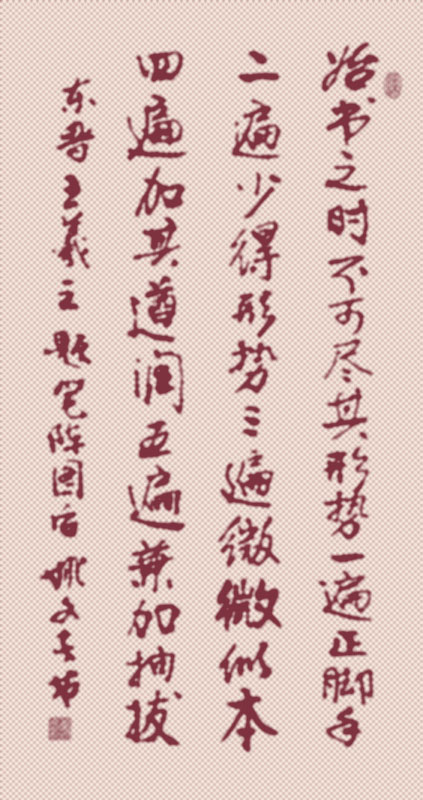 始书之时不可尽其形势一遍正脚手
二遍少得形势三遍微微似本
四遍加其遒润五遍兼加抽拔
东晋王羲之题笔阵图后姚文